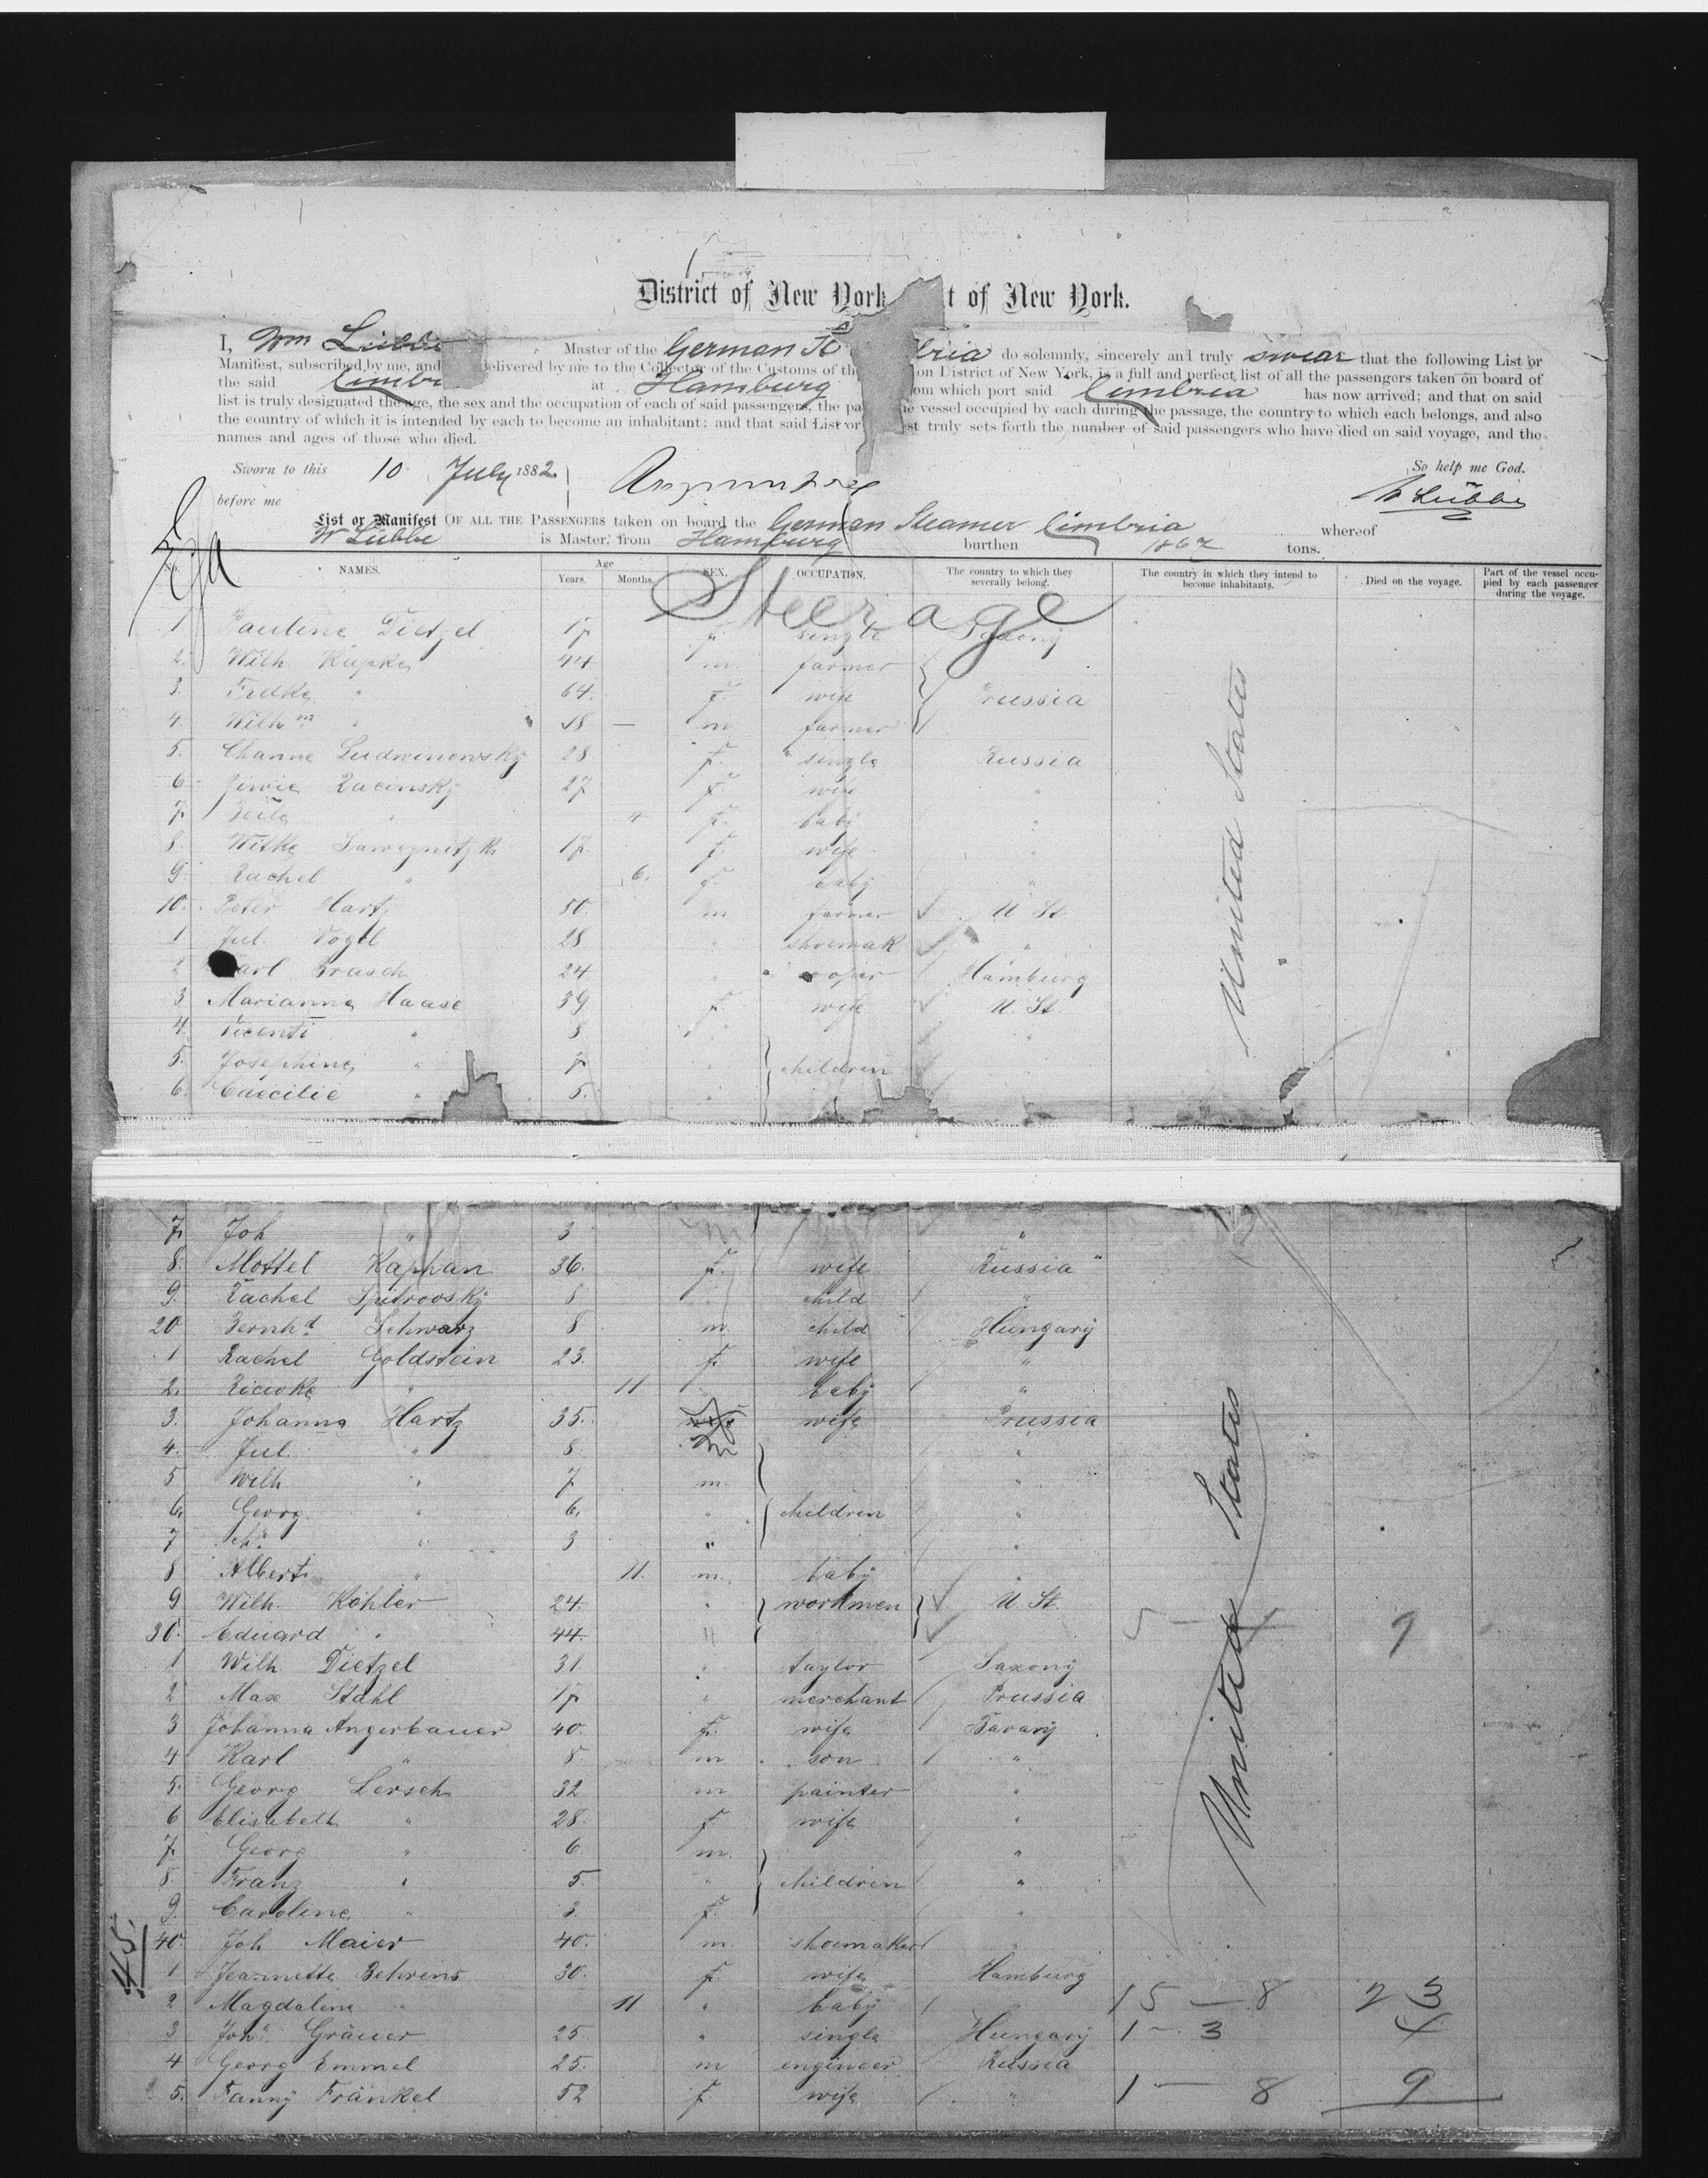 District of New York t of New York.
I, Wm Lübbe Master of the German St bria do solemnly, sincerely and truly swear that the following List or
Manifest, subscribed by me, and delivered by me to the Collector of the Customs of th on District of New York, is a full and perfect list of all the passengers taken on board of
the said Cimbr at Hamburg om which port said Cimbria has now arrived; and that on said
list is truly designated the age, the sex and the occupation of each of said passengers, the pa he vessel occupied by each during the passage, the country to which each belongs, and also
the country of which it is intended by each to become an inhabitant; and that said List or est truly sets forth the number of said passengers who have died on said voyage, and the
names and ages of those who died.
Sworn to this 10 July 1882 So help me God.
before me W Lübbe
List or Manifest OF ALL THE PASSENGERS taken on board the German Steamer Cimbria whereof
W Lübbe is Master, from Hamburg burthen 1867 tons.
No. NAMES. Age Years. Months. SEX. OCCUPATION. The country to which they severally belong. The country in which they intend to become inhabitants. Died on the voyage. Part of the vessel occupied by each passenger during the voyage.
Steerage
1 Pauline Dietzel 17 f. single Saxony
2. Wilh Kupke 44 m. farmer
3. " 64. f. wife Prussia
4. Wilhm " 18 — m farmer
5. Channe Ludwinowsky 28. f. " single Russia
6 Racinsky 27 f. wife "
7. Beile " 4 f. baby "
8. Witke 17. f. wife "
9. Rachel " 6. f. baby "
10. Peter Hartz 50. m farmer U St.
1 Jul. Vogtl 28 " shoemak "
2 arl Brasch 24 " Hamburg
3 Marianna Haase 39. f. wife U. St.
4. Vicenti " 8 " "
5. Josephina " 7 " children
6. Caecilie " 5. "
United States
7. Joh " 3 m "
8. Mottel Kaphan 36. f. wife Russia "
9. Rachel 8 " child "
20 Bernhd Schwarz 8 m. child Hungary
1 Rachel Goldstein 23. f. wife "
2. " 11 " baby "
3. Johanna Hartz 35. wife Prussia
4. Jul. " 8. m "
5 Wilh " 7 m. "
6. Georg " 6. " children "
7 " 3 " "
8 Albert " 11. m. baby "
9 Wilh. Köhler 24. " workmen U. St.
30. Eduard " 44. "
1 Wilh Dietzel 31. " taylor Saxony
2 Max Stahl 17 " merchant Prussia
3 Johanna Angerbauer 40. f. wife Bavary
4 Karl " 8. m son "
5. Georg Lersch 32 m painter "
6 Elisabeth " 28. f wife "
7. Georg " 6 m. "
8. Franz " 5. " children "
9. Caroline " 3. f. "
40. Joh Maier 40. m. shoemaker "
1 Jeannette Behrens 30. f. wife Hamburg
2 Magdalina " 11 " baby " 15 — 8 23
3 Gräuer 25. " single Hungary 1 — 3
4 Georg Emmel 25. m engineer Russia
5. Fanny Fränkel 52 f. wife " 1 — 8 9
United States
45.